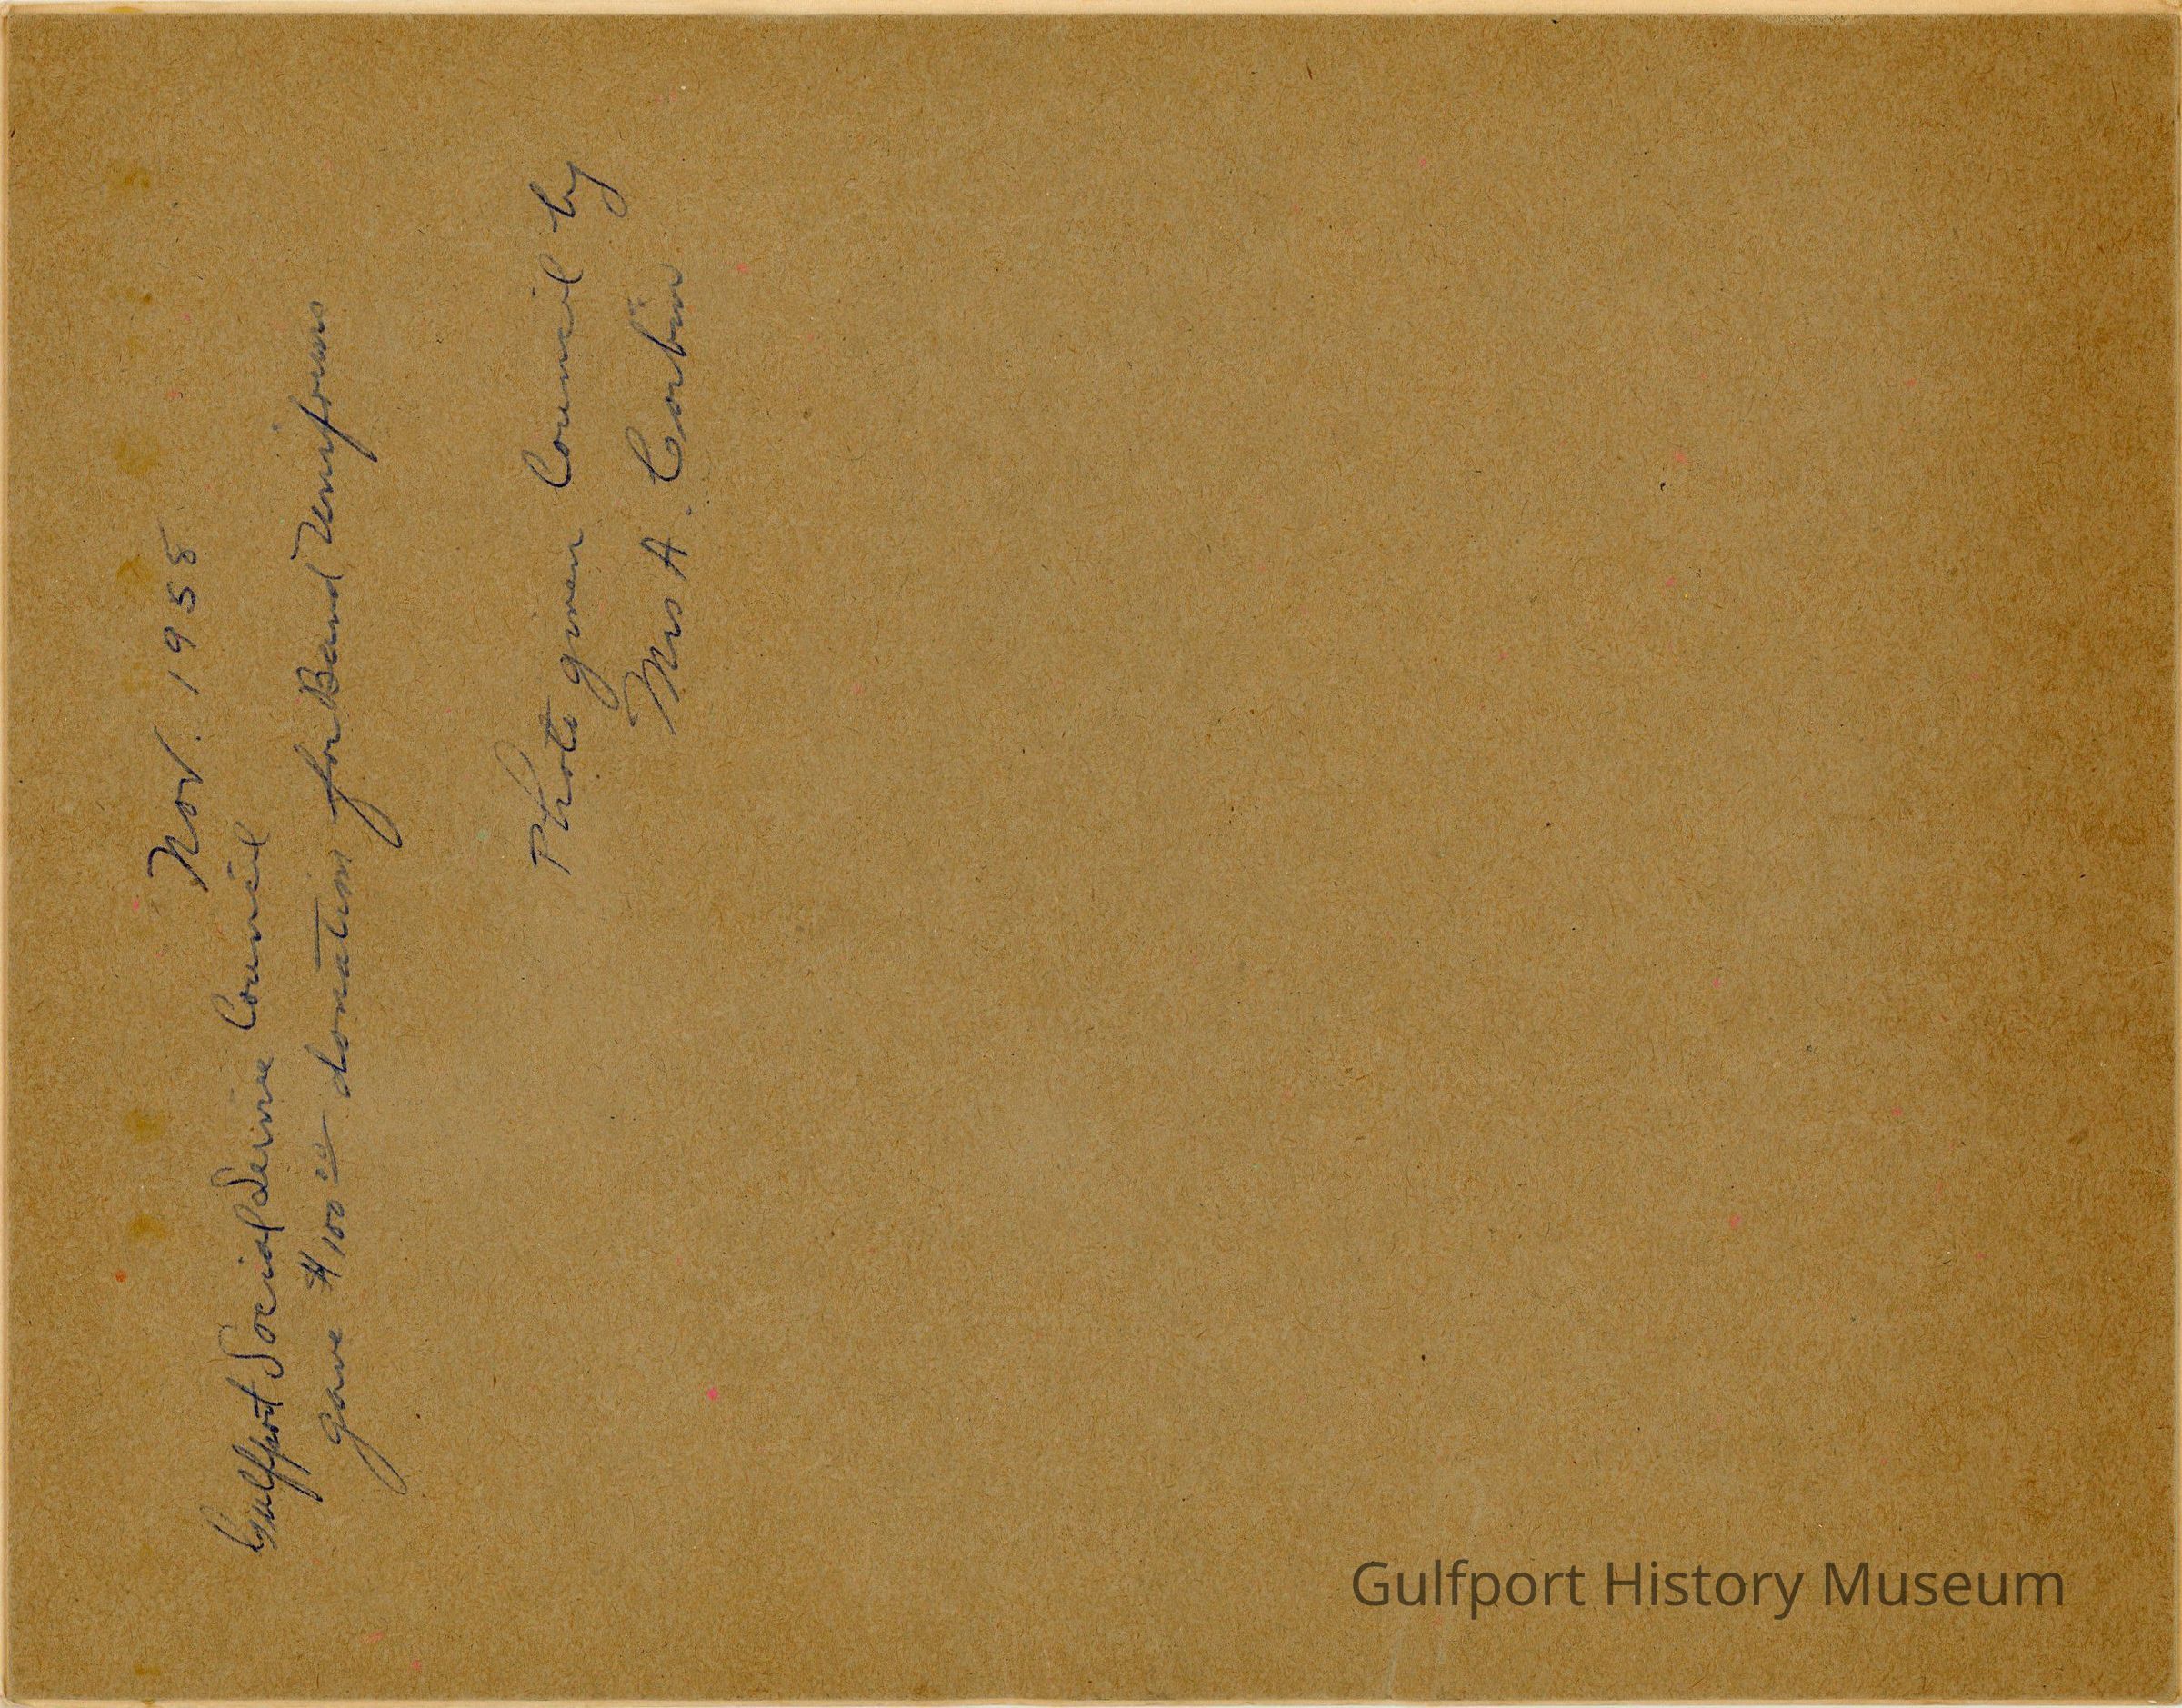 Nov. 1955
Gulfport Social Service Council
gave $100.00 donation for Band Uniforms
Photo given Council by
Mrs A. Corbin
Gulfport History Museum